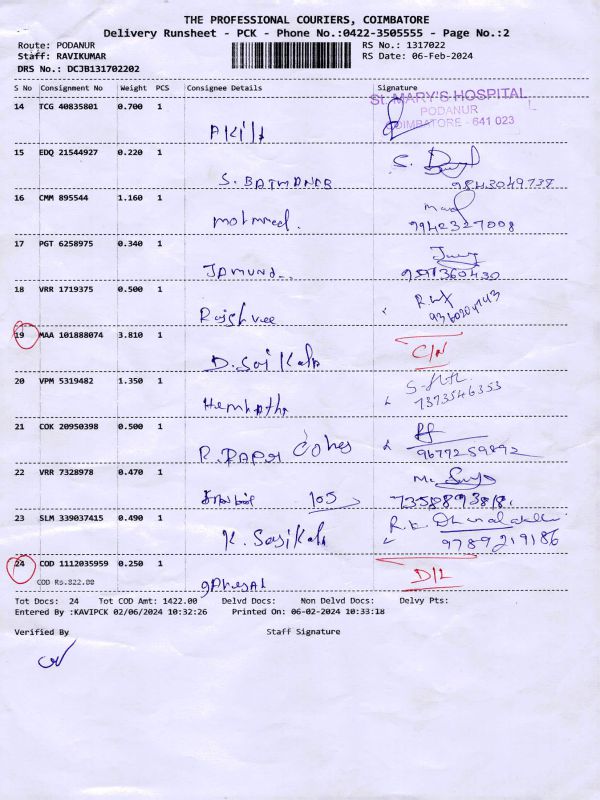 THE PROFESSIONAL COURIERS, COIMBATORE
Delivery Runsheet - PCK - Phone No.:0422-3505555 - Page No.:2
Route: PODANUR RS No.: 1317022
Staff: RAVIKUMAR RS Date: 06-Feb-2024
DRS No.: DCJB131702202
S No Consignment No Weight PCS Consignee Details Signature
St. MARY'S HOSPITAL
PODANUR
COIMBATORE - 641 023
14 TCG 40835801 0.700 1
15 EDQ 21544927 0.220 1
S.
9843049737
16 CMM 895544 1.160 1
mohmmed.
9942327008
17 PGT 6258975 0.340 1
Jamuna
9597360430
18 VRR 1719375 0.500 1
Rajshree
19 MAA 101888074 3.810 1
D. Sasikala C/N
20 VPM 5319482 1.350 1
7373546353
21 COK 20950398 0.500 1
9677259892
22 VRR 7328978 0.470 1
105
23 SLM 339037415 0.490 1
K. Sasikala
9789219186
24 COD 1112035959 0.250 1
COD Rs.822.00
D/L
Tot Docs: 24 Tot COD Amt: 1422.00 Delvd Docs: Non Delvd Docs: Delvy Pts:
Entered By :KAVIPCK 02/06/2024 10:32:26 Printed On: 06-02-2024 10:33:18
Verified By Staff Signature